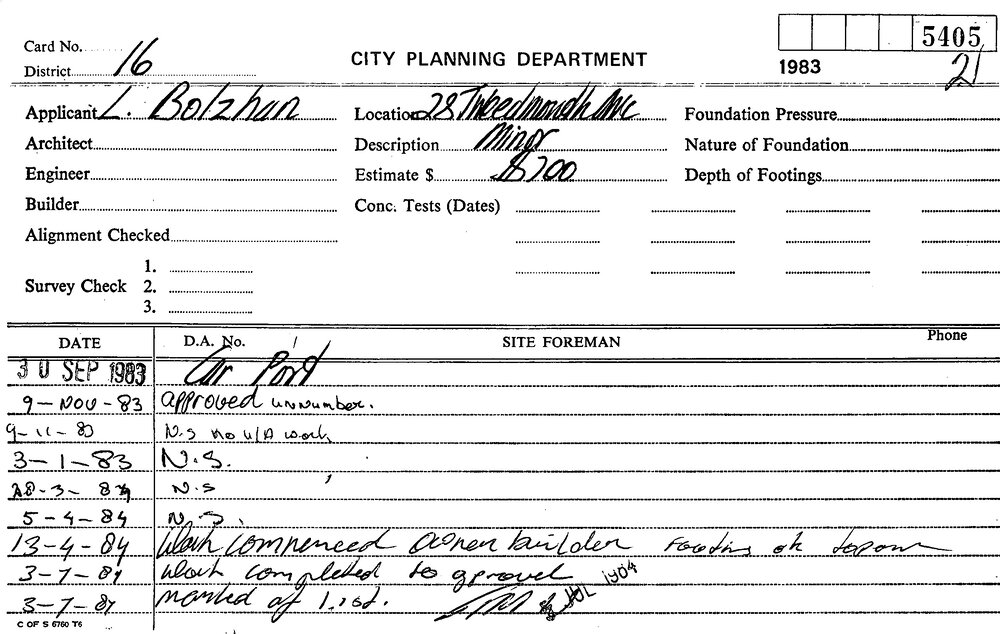 5405
Card No. 16
District
CITY PLANNING DEPARTMENT
1983 21
Applicant L. Bolzhan Location 28 Tweedmouth Ave Foundation Pressure
Architect Description Minor Nature of Foundation
Engineer Estimate $ $700 Depth of Footings
Builder Conc. Tests (Dates)
Alignment Checked
1.
Survey Check 2.
3.
DATE D.A. No. SITE FOREMAN Phone
30 SEP 1983 Car Port
9-NOV-83 approved unnumber.
9-11-83 N.S no u/A work
3-1-83 N.S.
28-3-84 N.S
5-4-84 N.S.
13-4-84 Work commenced owner builder Footing ok to pour
3-7-84 Work completed to aproval
3-7-84 marked of list.
C OF S 6760 T6